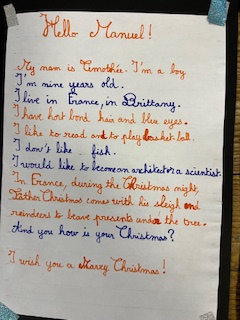 Hello Manuel!
My nam is Timothée. I'm a boy
I'm nine years old.
I live in France, in Brittany.
I have hort bond hair and blue eyes.
I like to read and to play basket ball.
I don't like fish.
I would like to become an architect or a scientist.
In France, during the Christmas night,
Father Christmas comes with his sleigh and
reindeers to leave presents under the tree.
And you how is your Christmas?
I wish you a Marry Christmas!